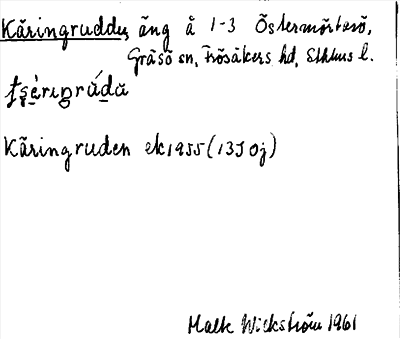 Käringruddu, äng å 1-3 Östermörtarö,
Gräsö sn, Frösåkers hd, Sthlms l.
Käringruden ek 1955 (13J 0j)
Malte Wickström 1961